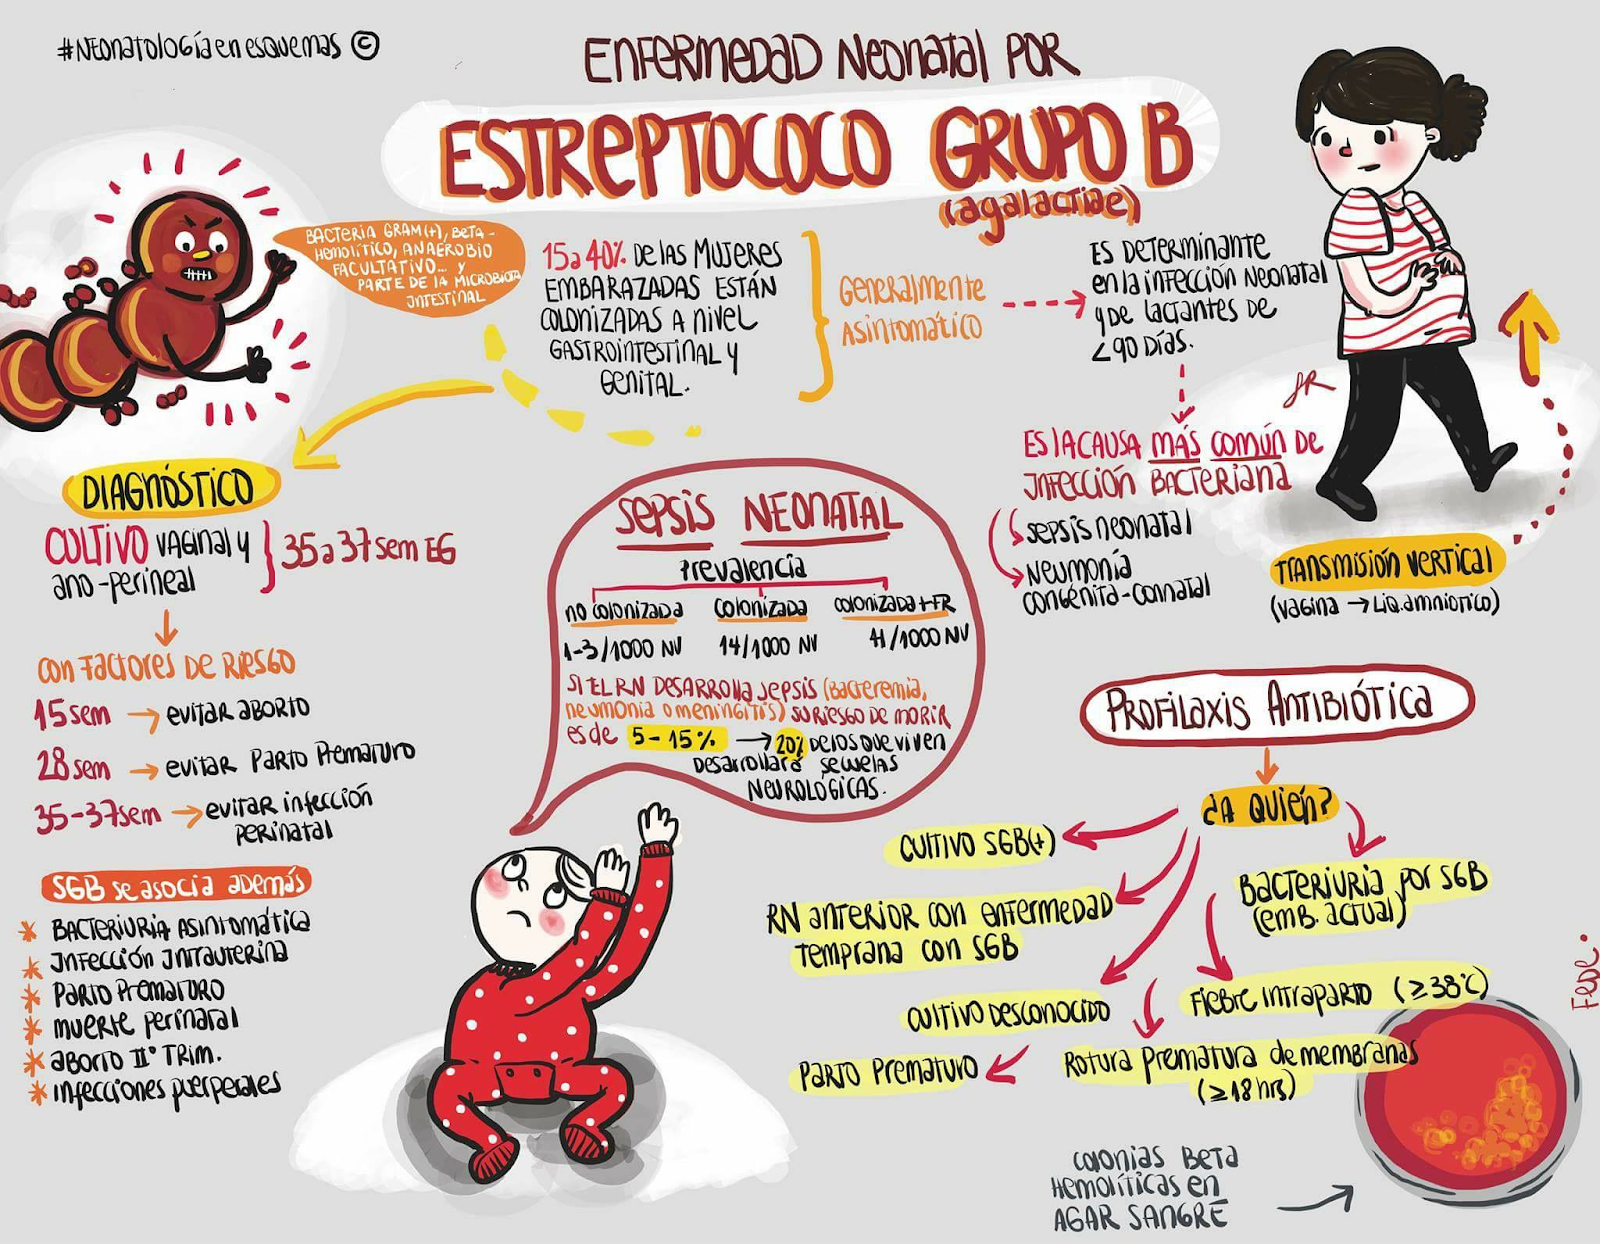 #Neonatología en esquemas ©
ENFERMEDAD NEONATAL POR
ESTREPTOCOCO GRUPO B
(agalactiae)
BACTERIA GRAM(+), BETA-
HEMOLÍTICO, ANAERÓBIO
FACULTATIVO... Y
PARTE DE LA MICROBIOTA
INTESTINAL
15 a 40% DE LAS MUJERES
EMBARAZADAS ESTÁN
COLONIZADAS A NIVEL
GASTROINTESTINAL Y
GENITAL.
GENERALMENTE
ASINTOMÁTICO
ES DETERMINANTE
EN LA INFECCIÓN NEONATAL
Y DE LACTANTES DE
<90 DÍAS.
ES LA CAUSA MÁS COMÚN DE
INFECCIÓN BACTERIANA
SEPSIS NEONATAL
NEUMONÍA
CONGÉNITA-CONNATAL
JR
TRANSMISIÓN VERTICAL
(VAGINA → LIQ. AMNIÓTICO)
DIAGNÓSTICO
CULTIVO VAGINAL Y
ANO-PERINEAL
35 a 37 sem EG
CON FACTORES DE RIESGO
15 sem → EVITAR ABORTO
28 sem → EVITAR PARTO PREMATURO
35-37 sem → EVITAR INFECCIÓN
PERINATAL
SGB SE ASOCIA ADEMÁS
* BACTERIURIA ASINTOMÁTICA
* INFECCIÓN INTRAUTERINA
* PARTO PREMATURO
* MUERTE PERINATAL
* ABORTO II° TRIM.
* INFECCIONES PUERPERALES
SEPSIS NEONATAL
PREVALENCIA
NO COLONIZADA COLONIZADA COLONIZADA + FR
1-3/1000 NV 14/1000 NV 41/1000 NV
SI EL RN DESARROLLA SEPSIS (BACTEREMIA,
NEUMONIA O MENINGITIS) SU RIESGO DE MORIR
ES DE 5-15% → 20% DE LOS QUE VIVEN
DESARROLLARÁ SEWELAS
NEUROLÓGICAS.
PROFILAXIS ANTIBIÓTICA
¿A QUIÉN?
CULTIVO SGB(+)
BACTERIURIA POR SGB
(EMB. ACTUAL)
RN ANTERIOR CON ENFERMEDAD
TEMPRANA CON SGB
FIEBRE INTRAPARTO (≥38°C)
CULTIVO DESCONOCIDO
PARTO PREMATURO
ROTURA PREMATURA DE MEMBRANAS
(≥18 hrs)
COLONIAS BETA
HEMOLÍTICAS EN
AGAR SANGRE
FEDE.